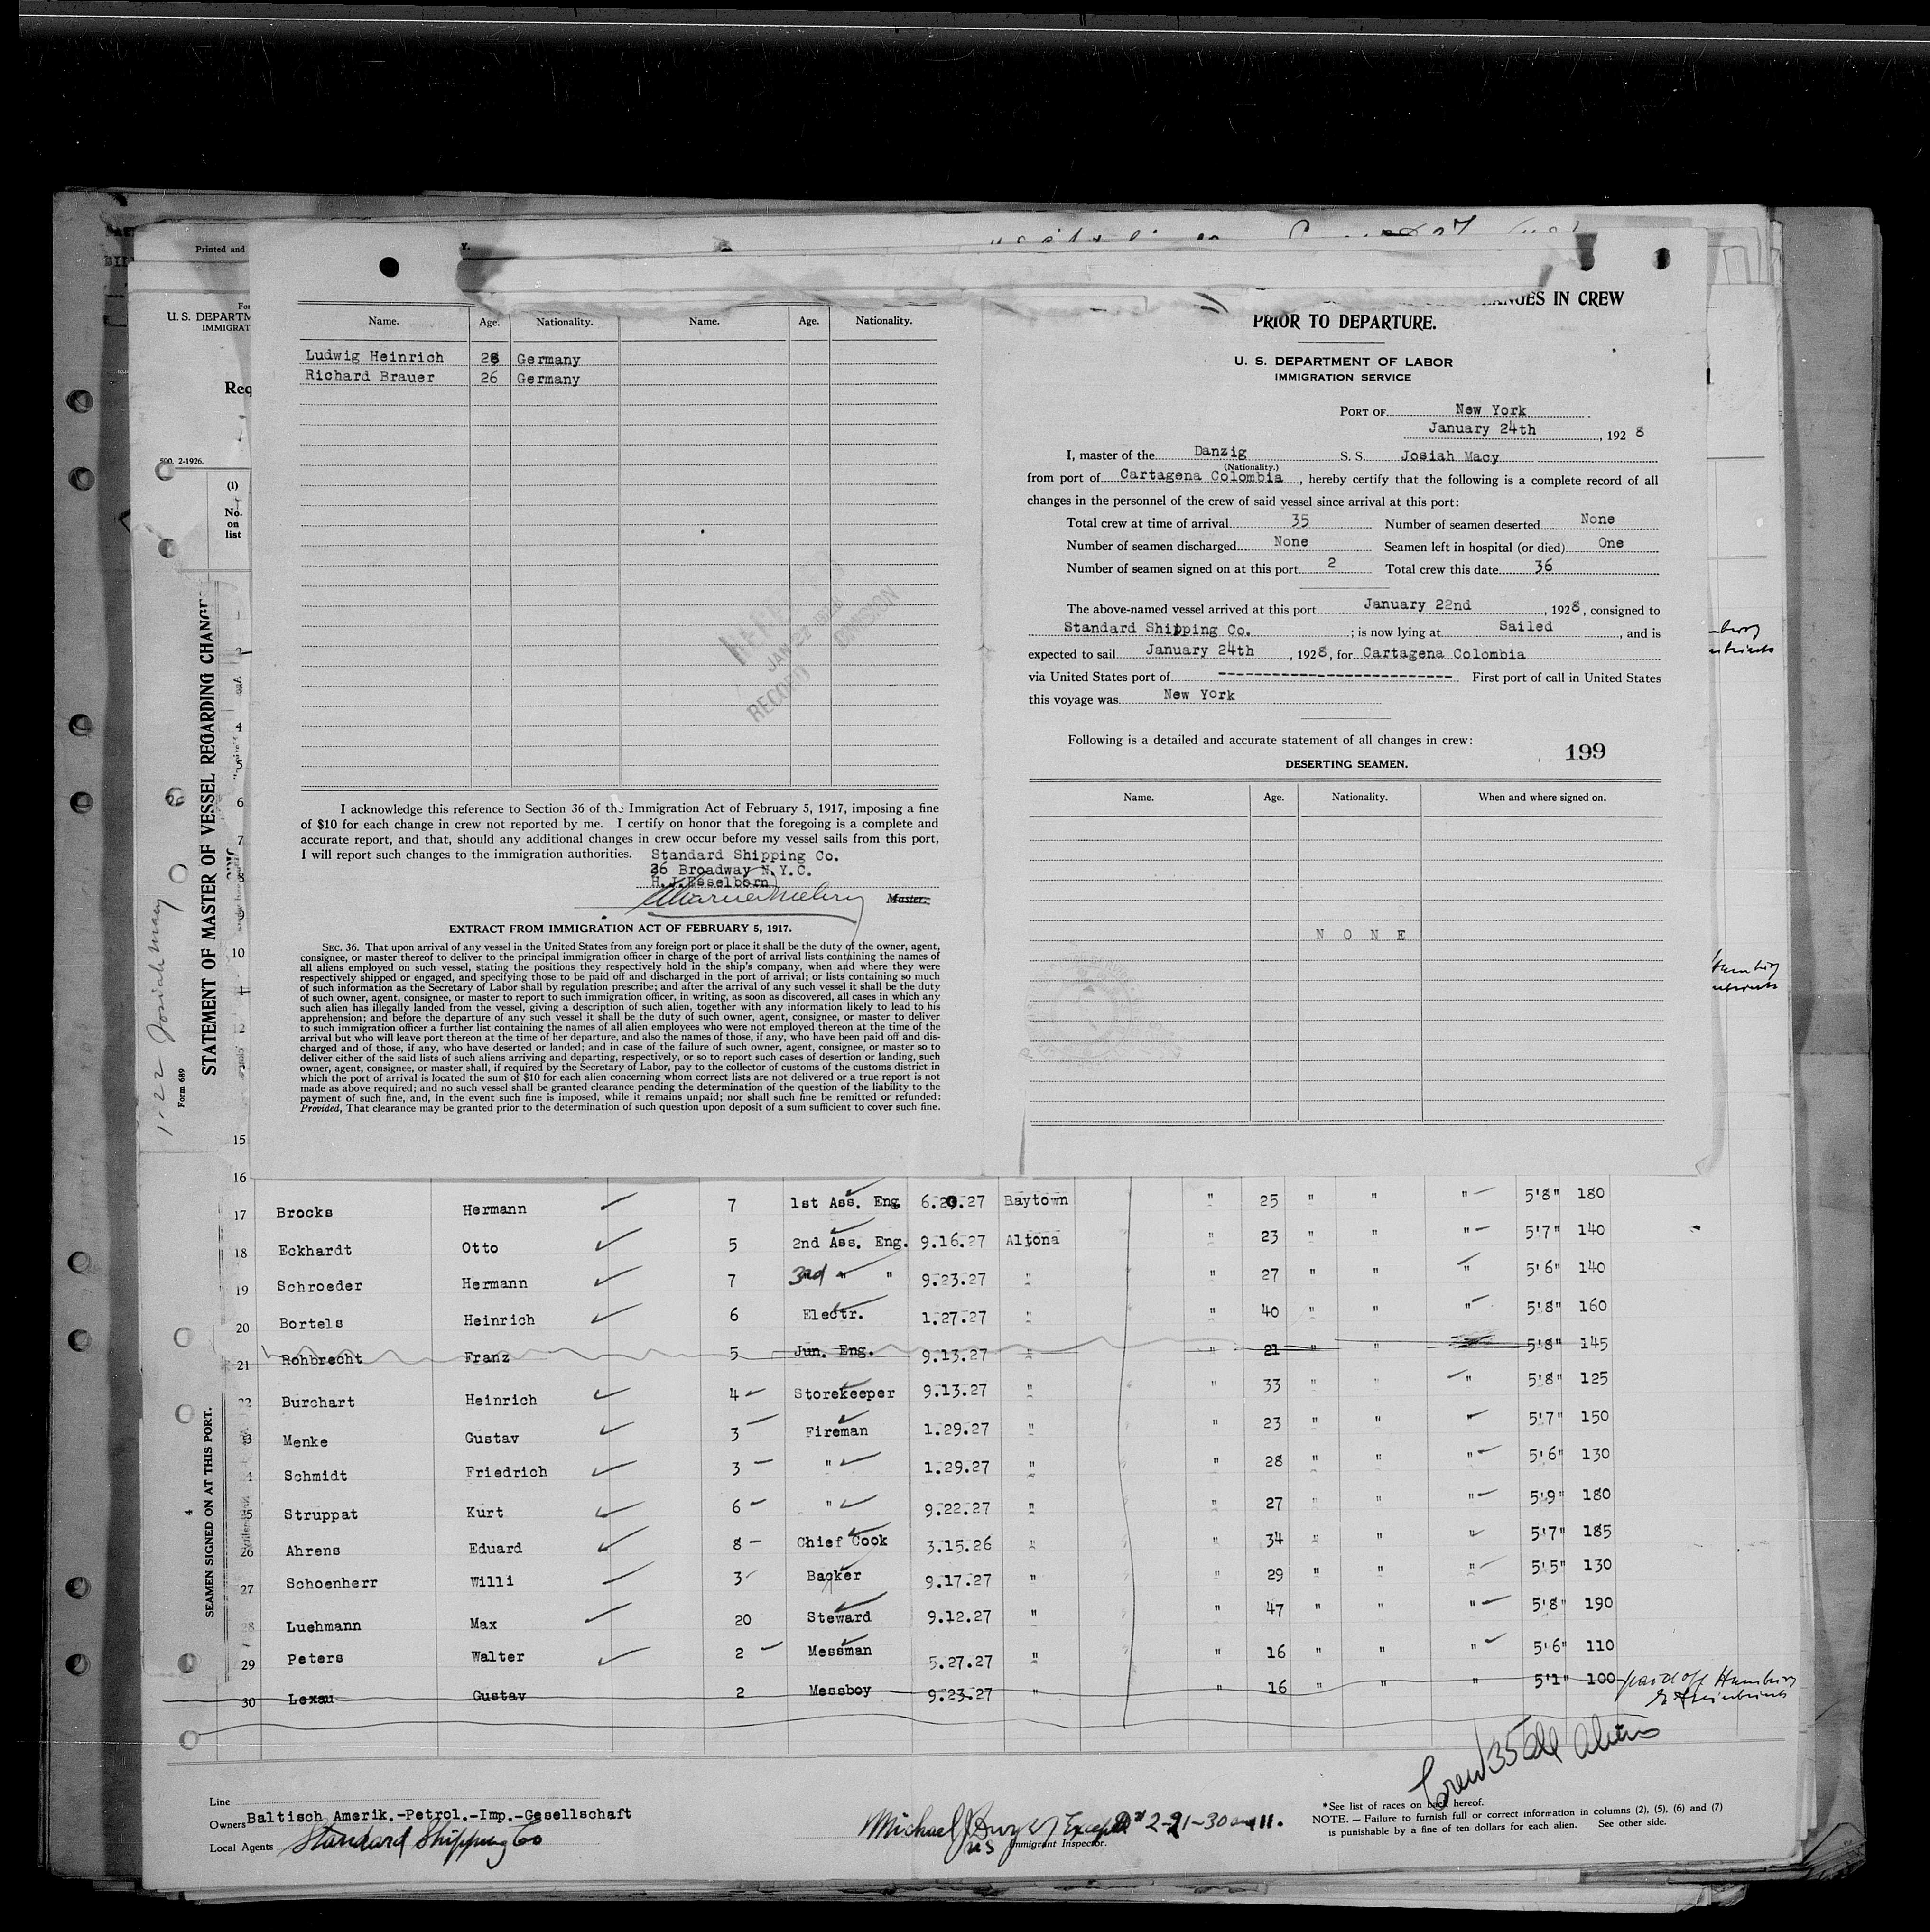 Printed and
U. S. DEPARTM
IMMIGRAT
Req
500. 2-1926.
(1)
No.
on
list
Form 689
STATEMENT OF MASTER OF VESSEL REGARDING CHANGE
1-22 Josiah Macy
4
SEAMEN SIGNED ON AT THIS PORT.
Name. Age. Nationality. Name. Age. Nationality.
Ludwig Heinrich 28 Germany
Richard Brauer 26 Germany
RECORD DIVISION
I acknowledge this reference to Section 36 of the Immigration Act of February 5, 1917, imposing a fine
of $10 for each change in crew not reported by me. I certify on honor that the foregoing is a complete and
accurate report, and that, should any additional changes in crew occur before my vessel sails from this port,
I will report such changes to the immigration authorities. Standard Shipping Co.
26 Broadway N.Y.C.
H.J.Esselborn
Master.
EXTRACT FROM IMMIGRATION ACT OF FEBRUARY 5, 1917.
SEC. 36. That upon arrival of any vessel in the United States from any foreign port or place it shall be the duty of the owner, agent,
consignee, or master thereof to deliver to the principal immigration officer in charge of the port of arrival lists containing the names of
all aliens employed on such vessel, stating the positions they respectively hold in the ship's company, when and where they were
respectively shipped or engaged, and specifying those to be paid off and discharged in the port of arrival; or lists containing so much
of such information as the Secretary of Labor shall by regulation prescribe; and after the arrival of any such vessel it shall be the duty
of such owner, agent, consignee, or master to report to such immigration officer, in writing, as soon as discovered, all cases in which any
such alien has illegally landed from the vessel, giving a description of such alien, together with any information likely to lead to his
apprehension; and before the departure of any such vessel it shall be the duty of such owner, agent, consignee, or master to deliver
to such immigration officer a further list containing the names of all alien employees who were not employed thereon at the time of the
arrival but who will leave port thereon at the time of her departure, and also the names of those, if any, who have been paid off and dis-
charged and of those, if any, who have deserted or landed; and in case of the failure of such owner, agent, consignee, or master so to
deliver either of the said lists of such aliens arriving and departing, respectively, or so to report such cases of desertion or landing, such
owner, agent, consignee, or master shall, if required by the Secretary of Labor, pay to the collector of customs of the customs district in
which the port of arrival is located the sum of $10 for each alien concerning whom correct lists are not delivered or a true report is not
made as above required; and no such vessel shall be granted clearance pending the determination of the question of the liability to the
payment of such fine, and, in the event such fine is imposed, while it remains unpaid; nor shall such fine be remitted or refunded:
Provided, That clearance may be granted prior to the determination of such question upon deposit of a sum sufficient to cover such fine.
CHANGES IN CREW
PRIOR TO DEPARTURE.
U. S. DEPARTMENT OF LABOR
IMMIGRATION SERVICE
PORT OF New York
January 24th, 1928
I, master of the Danzig S. S. Josiah Macy
(Nationality.)
from port of Cartagena Colombia, hereby certify that the following is a complete record of all
changes in the personnel of the crew of said vessel since arrival at this port:
Total crew at time of arrival 35 Number of seamen deserted None
Number of seamen discharged None Seamen left in hospital (or died) One
Number of seamen signed on at this port 2 Total crew this date 36
The above-named vessel arrived at this port January 22nd, 1928, consigned to
Standard Shipping Co. ; is now lying at Sailed, and is
expected to sail January 24th, 1928, for Cartagena Colombia
via United States port of -------------------------- First port of call in United States
this voyage was New York
Following is a detailed and accurate statement of all changes in crew:
199
DESERTING SEAMEN.
Name. Age. Nationality. When and where signed on.
N O N E
4
5
6
7
8
9
10
12
15
16
17 Brocks Hermann 7 1st Ass. Eng 6.20.27 Baytown " 25 " " " 5'8" 180
18 Eckhardt Otto 5 2nd Ass. Eng. 9.16.27 Altona " 23 " " " 5'7" 140
19 Schroeder Hermann 7 3rd " " 9.23.27 " " 27 " " " 5'6" 140
20 Bortels Heinrich 6 Electr. 1.27.27 " " 40 " " " 5'8" 160
21 Rohbrecht Franz 5 Jun. Eng. 9.13.27 " " 21 " " 5'8" 145
22 Burchart Heinrich 4 Storekeeper 9.13.27 " " 33 " " " 5'8" 125
23 Menke Gustav 3 Fireman 1.29.27 " " 23 " " " 5'7" 150
24 Schmidt Friedrich 3 " 1.29.27 " " 28 " " " 5'6" 130
25 Struppat Kurt 6 " 9.22.27 " " 27 " " " 5'9" 180
26 Ahrens Eduard 8 Chief Cook 3.15.26 " " 34 " " " 5'7" 185
27 Schoenherr Willi 3 Backer 9.17.27 " " 29 " " " 5'5" 130
28 Luehmann Max 20 Steward 9.12.27 " " 47 " " " 5'8" 190
29 Peters Walter 2 Messman 5.27.27 " " 16 " " " 5'6" 110
30 Lexau Gustav 2 Messboy 9.23.27 " " 16 " " " 5'1" 100 paid off Hamburg
Crew 35 all aliens
Line
Owners Baltisch Amerik.-Petrol.-Imp.-Gesellschaft
Local Agents Standard Shipping Co
Michael J Dwyer Except #2-21-30 and 11.
US Immigrant Inspector.
*See list of races on back hereof.
NOTE.—Failure to furnish full or correct information in columns (2), (5), (6) and (7)
is punishable by a fine of ten dollars for each alien. See other side.